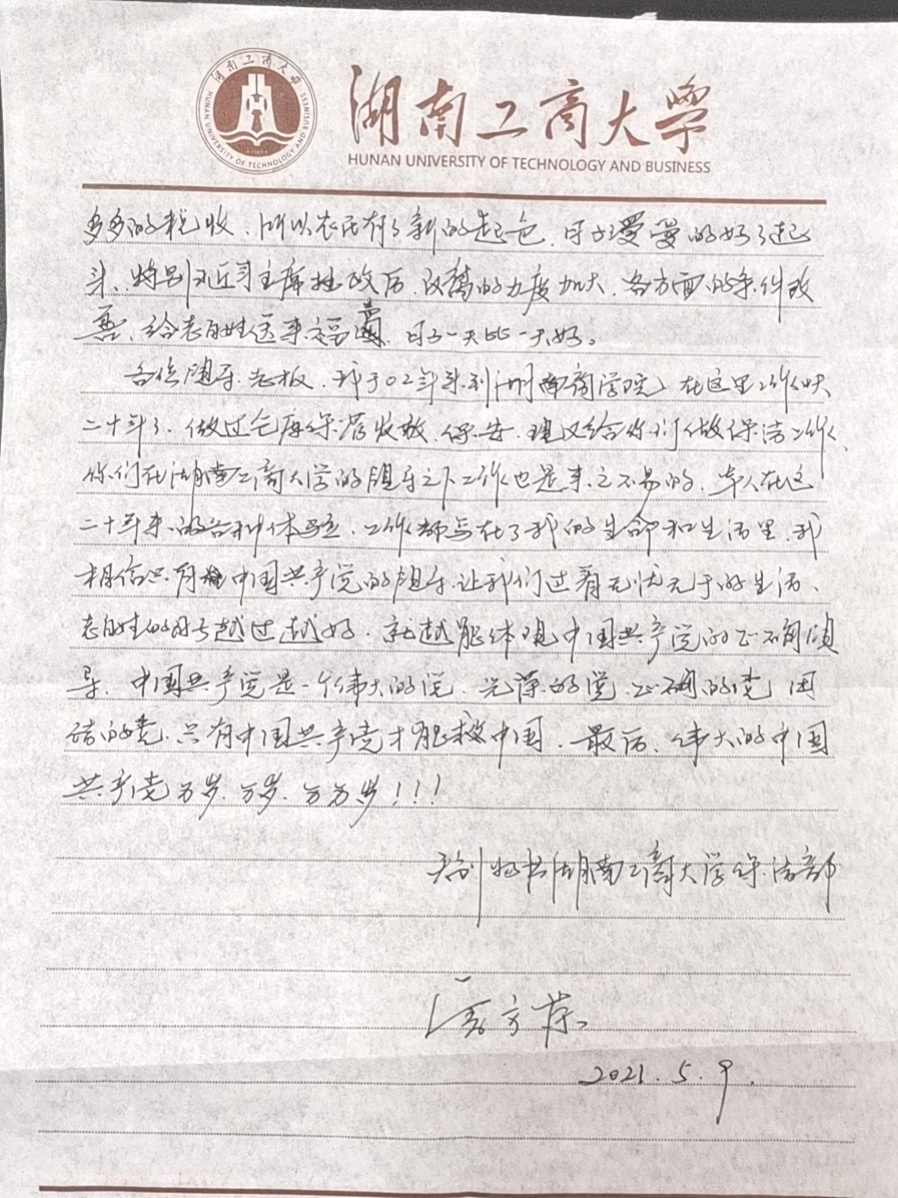 湖南工商大学
HUNAN UNIVERSITY OF TECHNOLOGY AND BUSINESS
湖南工商大學
HUNAN UNIVERSITY OF TECHNOLOGY AND BUSINESS
多多的税收、所以农民有了新的起色、日子慢慢的好了起
来、特别近习主席执政后、改革的力度加大、各方面的条件改
善、给老百姓送来福音、日子一天比一天好。
各位领导、老板、我于02年来到湖南商学院、在这里工作快
二十年了、做过仓库保管收款、保安、现又给你们做保洁工作、
你们在湖南工商大学的领导之下工作也是来之不易的、本人在这
二十年来的各种体验、工作都写在了我的生命和生活里、我
相信只有中国共产党的领导、让我们过着无忧无于的生活、
老百姓的日子越过越好、就越能体现中国共产党的正确领
导、中国共产党是一个伟大的党、光荣的党、正确的党、团
结的党、只有中国共产党才能救中国、最后、伟大的中国
共产党万岁、万岁、万万岁！！！
湖南工商大学保洁部
方荣
2021.5.9.